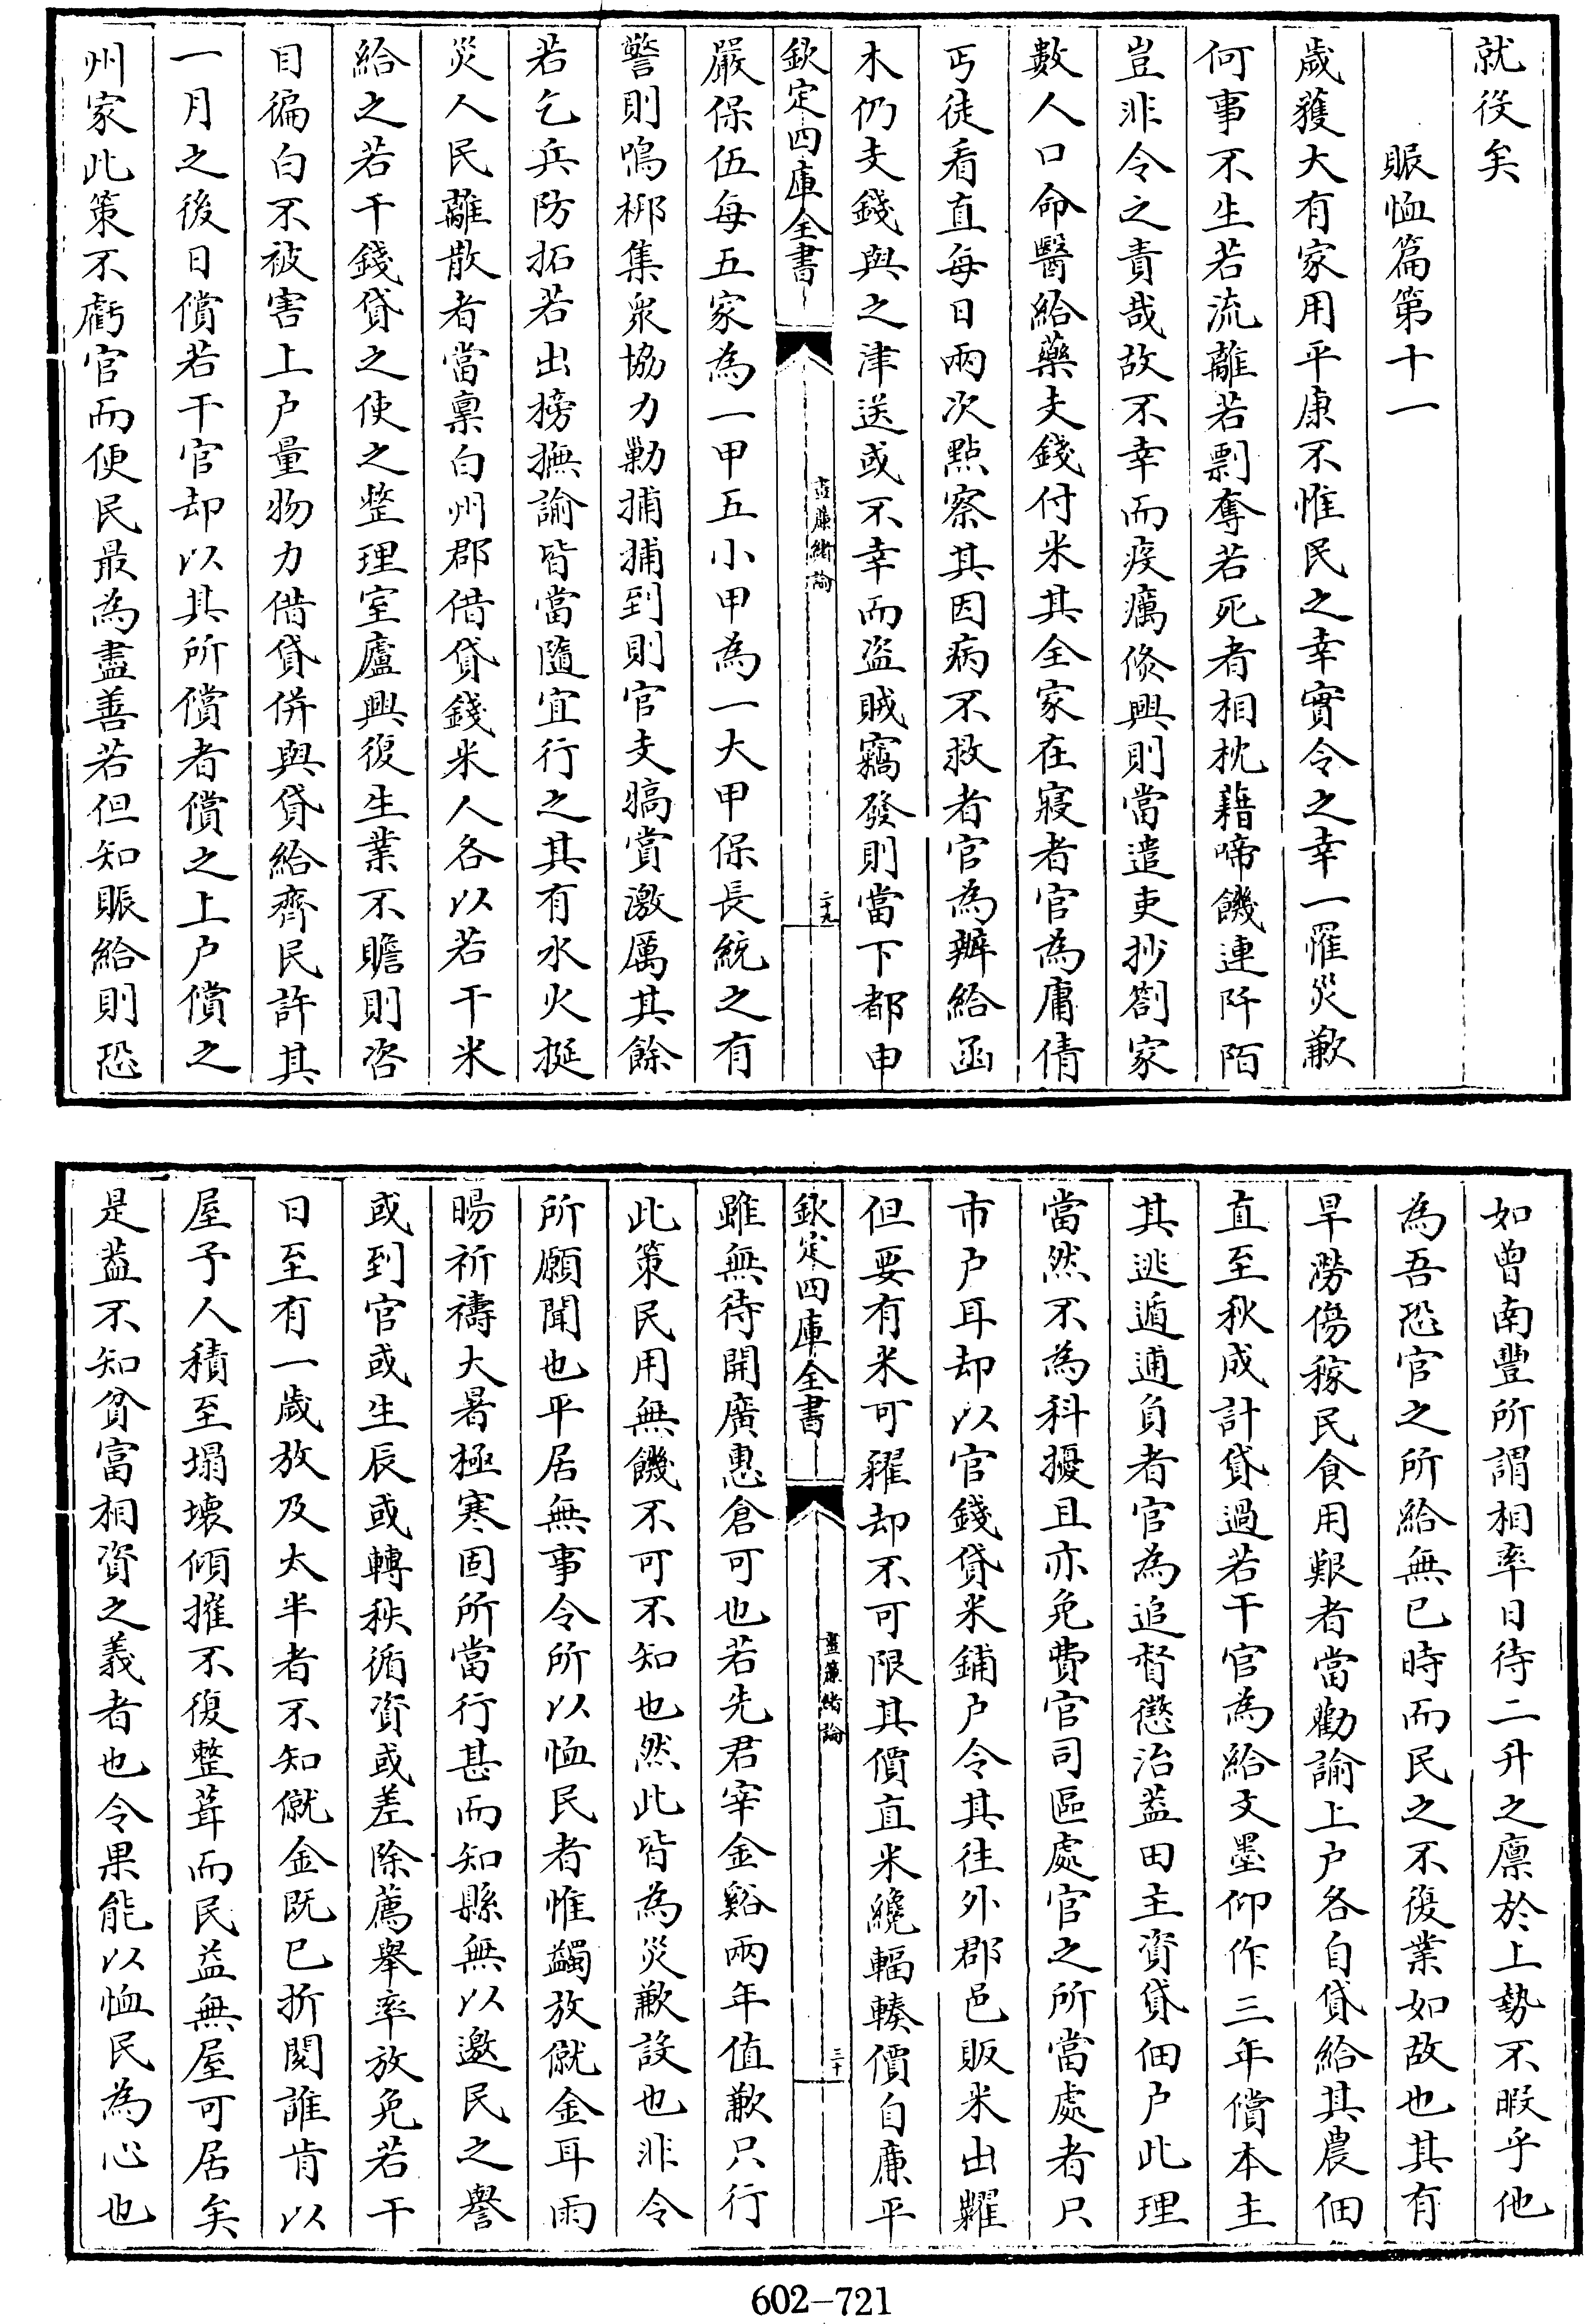 就役矣
賑恤篇第十一
歲獲大有家用平康不惟民之幸實令之幸一罹災歉
何事不生若流離若剽奪若死者相枕藉啼饑連阡陌
豈非令之責哉故不幸而疫癘倐興則當遣吏抄劄家
數人口命醫給藥支錢付米其全家在寢者官為庸倩
丐徒看直每日兩次點察其因病不救者官為辦給函
木仍支錢與之津送或不幸而盜賊竊發則當下都申
欽定四庫全書
晝簾緒論
二十九
嚴保伍每五家為一甲五小甲為一大甲保長統之有
警則鳴梆集衆協力勦捕捕到則官支犒賞激厲其餘
若乞兵防拓若出榜撫諭皆當隨宜行之其有水火挻
災人民離散者當稟白州郡借貸錢米人各以若干米
給之若干錢貸之使之整理室廬興復生業不贍則咨
目徧白不被害上户量物力借貸併與貸給齊民許其
一月之後日償若干官却以其所償者償之上户償之
州家此策不虧官而便民最為盡善若但知賑給則恐
如曾南豐所謂相率日待二升之廪於上勢不暇乎他
為吾恐官之所給無已時而民之不復業如故也其有
旱澇傷稼民食用艱者當勸諭上户各自貸給其農佃
直至秋成計貸過若干官為給文墨仰作三年償本主
其逃遁逋負者官為追督懲治葢田主資貸佃户此理
當然不為科擾且亦免費官司區處官之所當處者只
市户耳却以官錢貸米鋪户令其往外郡邑販米出糶
但要有米可糴却不可限其價直米纔輻輳價自廉平
欽定四庫全書
晝簾緒論
三十
雖無待開廣惠倉可也若先君宰金谿兩年值歉只行
此策民用無饑不可不知也然此皆為災歉設也非令
所願聞也平居無事令所以恤民者惟蠲放僦金耳雨
暘祈禱大暑極寒固所當行甚而知縣無以邀民之譽
或到官或生辰或轉秩循資或差除薦舉率放免若干
日至有一歲放及太半者不知僦金既已折閱誰肯以
屋予人積至塌壞傾摧不復整葺而民益無屋可居矣
是葢不知貧富相資之義者也令果能以恤民為心也
602-721